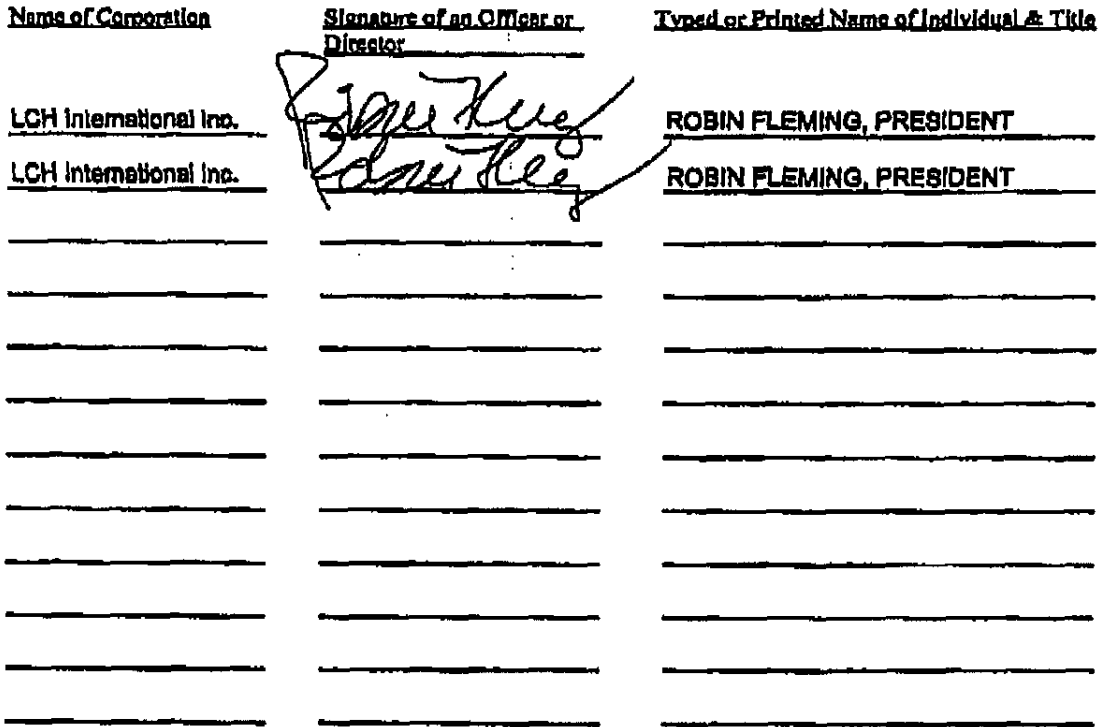 Name of Corporation
Signature of an Officer or
Director
Typed or Printed Name of Individual & Title
LCH International Inc.
ROBIN FLEMING, PRESIDENT
LCH International Inc.
ROBIN FLEMING, PRESIDENT